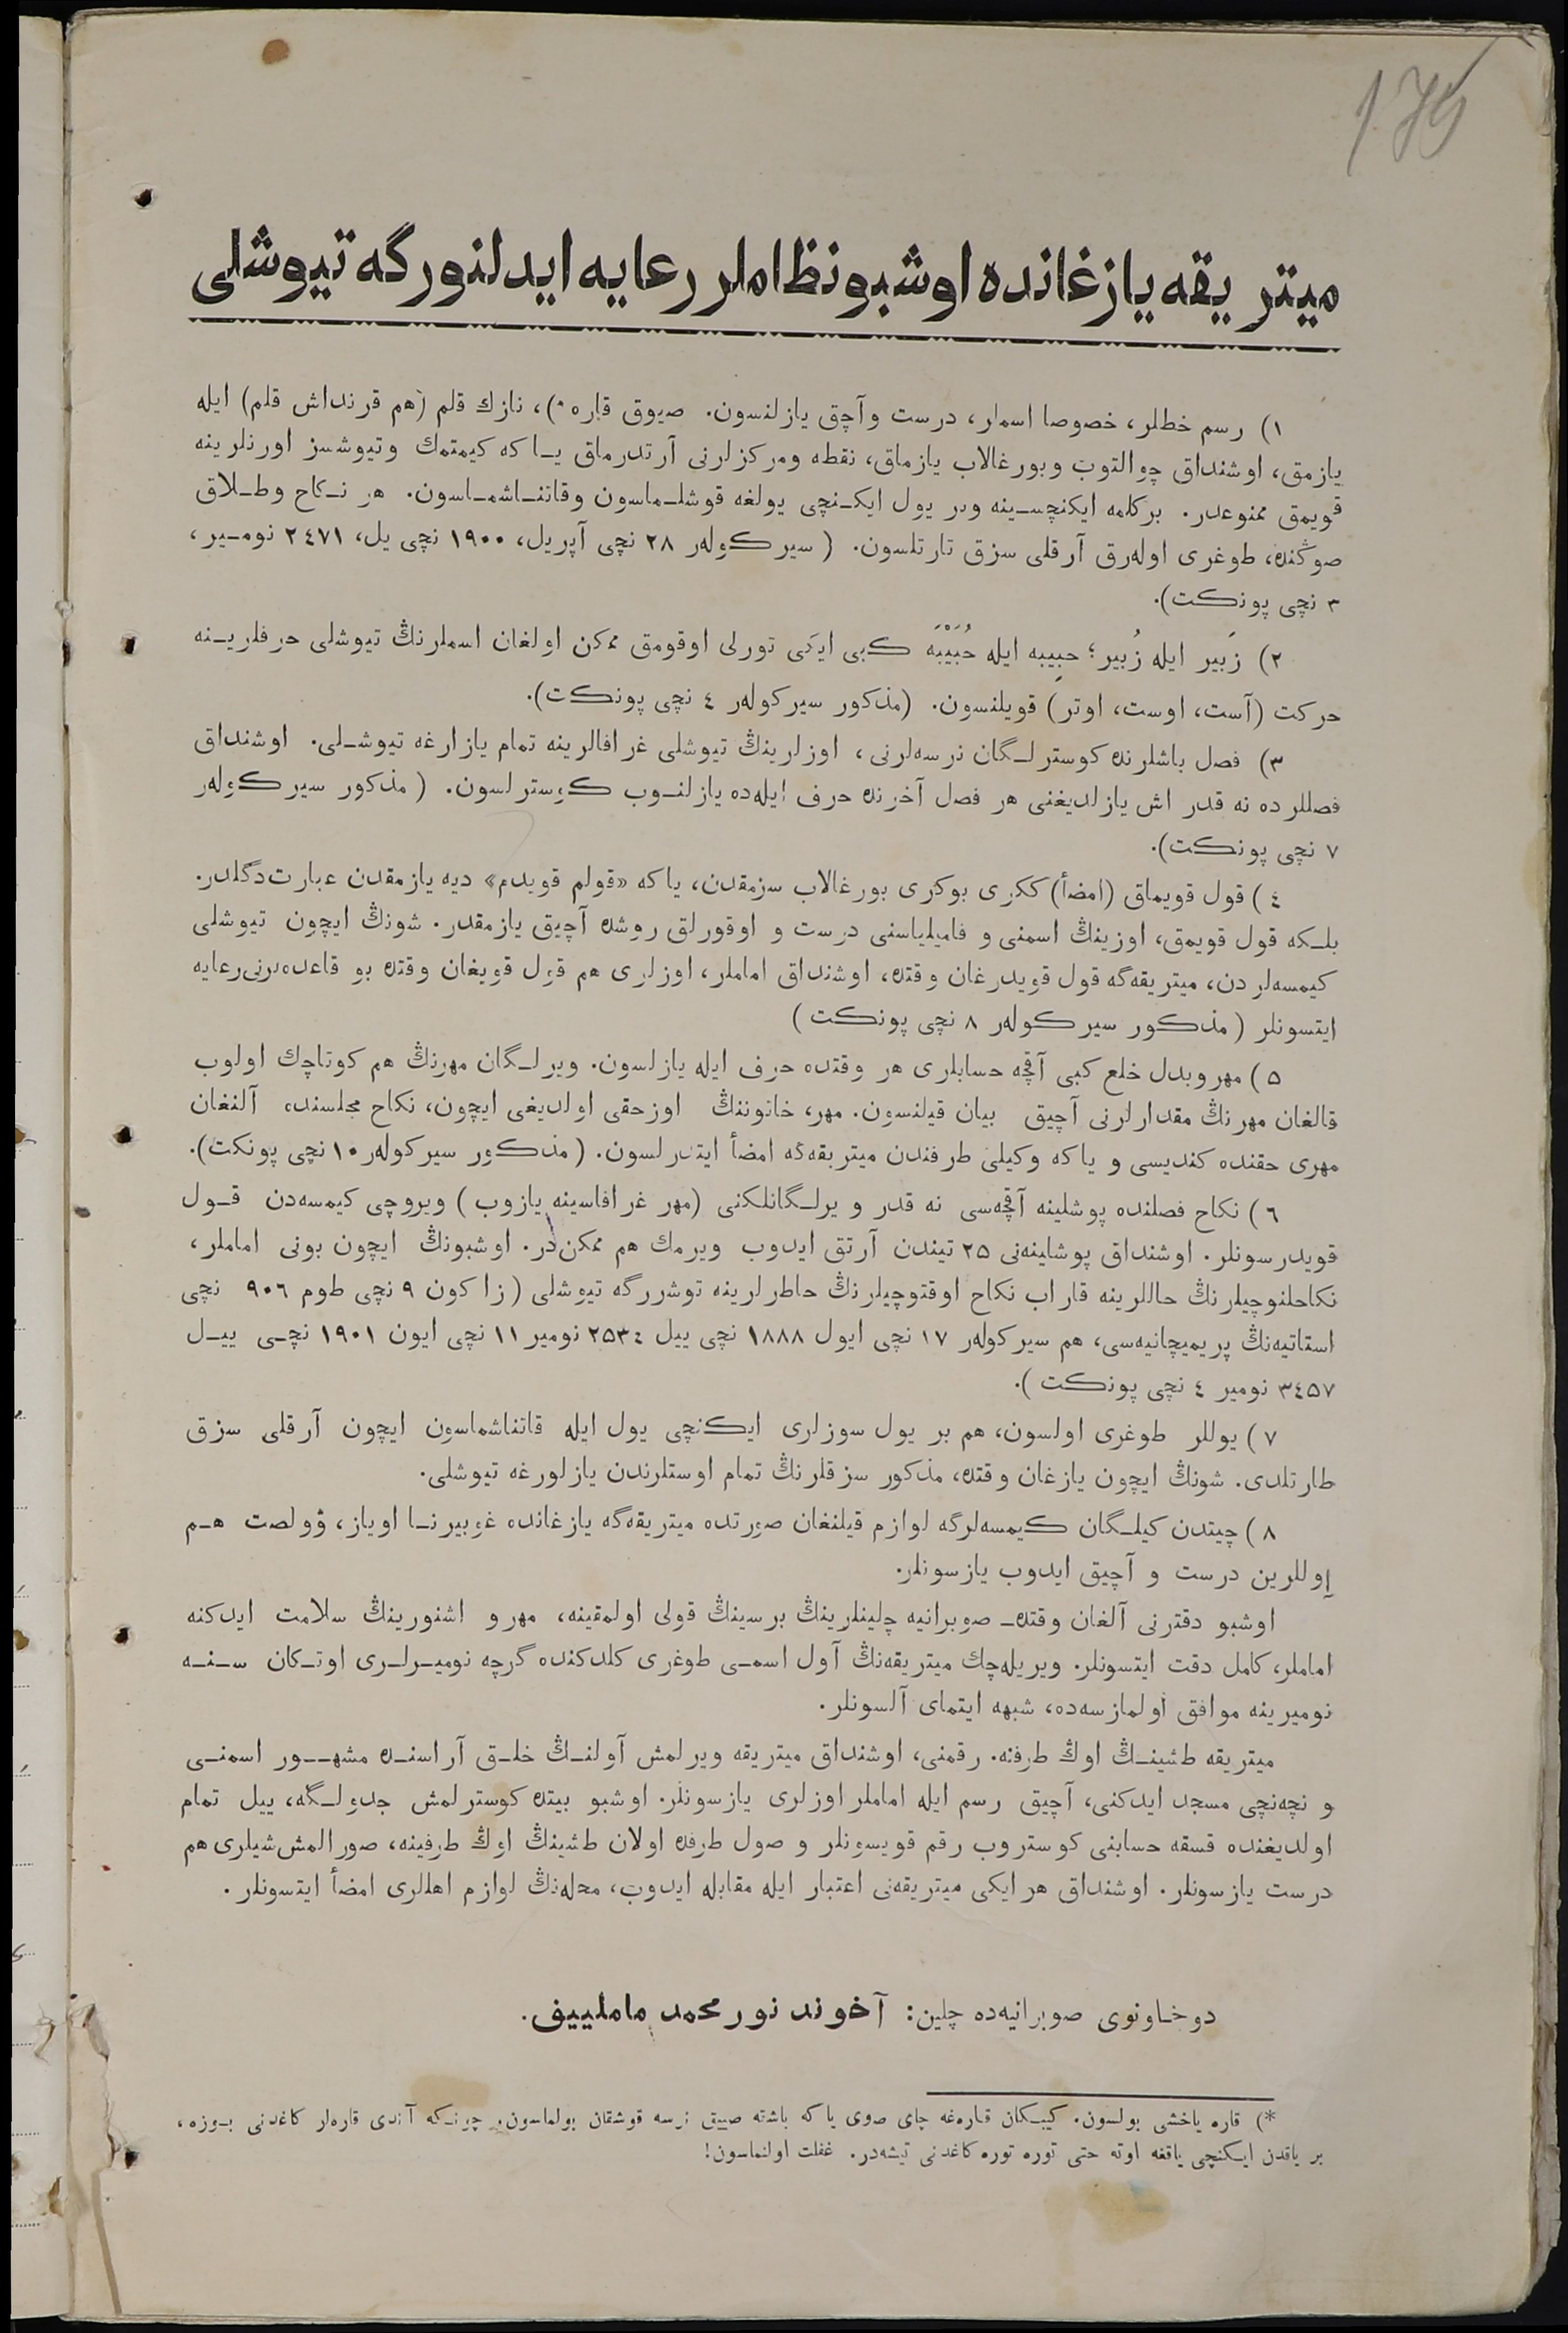 179
ميتريقه يازغانده اوشبو نظاملر رعايه ايدلنورگه تيوشلى
١) رسم خطلر، خصوصا اسملر، درست وآچق يازلنسون. صيوق قاره *)، نازك قلم (هم قرنداش قلم) ايله
يازمق، اوشنداق چوالتوب وبورغالاب يازماق، نقطه ومركزلرنى آرتدرماق يـا كه كيمتمك وتيوشسز اورنلرينه
قويمق ممنوعدر. بركلمه ايكنچسـينه وبر يول ايكـنچى يولغه قوشلـماسون وقاتنـاشمـاسون. هر نـكاح وطـلاق
صوڭنده، طوغرى اولەرق آرقلى سزق تارتلسون. (سيركولەر ٢٨ نچى آپريل، ١٩٠٠ نچى يل، ٢٤٧١ نومـير،
٣ نچى پونكت).
٢) زَبير ايله زُبير؛ حبِيبه ايله حُبَيْبَه كبى ايكى تورلى اوقومق ممكن اولغان اسملرنڭ تيوشلى حرفلريـنه
حركت (آست، اوست، اوتر) قويلنسون. (مذكور سيركولەر ٤ نچى پونكت).
٣) فصل باشلرنده كوسترلـگان نرسەلرنى، اوزلرينڭ تيوشلى غرافالرينه تمام يازارغه تيوشـلى. اوشنداق
فصللرده نه قدر اش يازلديغنى هر فصل آخرنده حرف ايله‌ده يازلنـوب كوسترلسون. (مذكور سيركولەر
٧ نچى پونكت).
٤) قول قويماق (امضأ) ككرى بوكرى بورغالاب سزمقدن، ياكه «قولم قويدم» ديه يازمقدن عبارت دگلدر.
بلـكه قول قويمق، اوزينڭ اسمنى و فاميلياسنى درست و اوقورلق روشده آچيق يازمقدر. شونڭ ايچون تيوشلى
كيمسەلردن، ميتريقەگه قول قويدرغان وقتده، اوشنداق اماملر، اوزلرى هم قول قويغان وقتده بو قاعدەلرنى رعايه
ايتسونلر (مذكور سيركولەر ٨ نچى پونكت)
٥) مهر وبدل خلع كبى آقچه حسابلرى هر وقتده حرف ايله يازلسون. ويرلـگان مهرنڭ هم كوتاچك اولوب
قالغان مهرنڭ مقدارلرنى آچيق بيان قيلنسون. مهر، خاتوننڭ اوزحقى اولديغى ايچون، نكاح مجلسنده آلنغان
مهرى حقنده كنديسى و ياكه وكيلى طرفندن ميتريقەگه امضأ ايتدرلسون. (مذكور سيركولەر ١٠ نچى پونكت).
٦) نكاح فصلنده پوشلينه آقچەسى نه قدر ويرلـگانلكنى (مهر غرافاسينه يازوب) ويروچى كيمسەدن قـول
قويدرسونلر. اوشنداق پوشلينەنى ٢٥ تيندن آرتق ايدوب ويرمك هم ممكن‌در. اوشبونڭ ايچون بونى اماملر،
نكاحلنوچيلرنڭ حاللرينه قاراب نكاح اوقتوچيلرنڭ خاطرلرينه توشررگه تيوشلى (زاكون ٩ نچى طوم ٩٠٦ نچى
استاتيەنڭ پريميچانيەسى، هم سيركولەر ١٧ نچى ايول ١٨٨٨ نچى ييل ٢٥٣٤ نومير ١١ نچى ايون ١٩٠١ نچـى ييـل
٣٤٥٧ نومير ٤ نچى پونكت).
٧) يوللر طوغرى اولسون، هم بر يول سوزلرى ايكنچى يول ايله قاتناشماسون ايچون آرقلى سزق
طارتلدى. شونڭ ايچون يازغان وقتده، مذكور سزقلرنڭ تمام اوستلرندن يازلورغه تيوشلى.
٨) چيتدن كيلـگان كيمسەلرگه لوازم قيلنغان صورتده ميتريقەگه يازغانده غوبيرنـا اوياز، ۋولصت هـم
اوللرين درست و آچيق ايدوب يازسونلر.
اوشبو دفترنى آلغان وقتده صوبرانيه چلينلرينڭ برسينڭ قولى اولمقينه، مهر و اشنورينڭ سلامت ايدكنه
اماملر، كامل دقت ايتسونلر. ويريلەچك ميتريقەنڭ آول اسمـى طوغرى كلدكنده گرچه نوميـرلـرى اوتـكان سـنـه
نوميرينه موافق اولمازسه‌ده، شبهه ايتماى آلسونلر.
ميتريقه طشينـڭ اوڭ طرفنه، رقمنى، اوشنداق ميتريقه ويرلمش آولنـڭ خلـق آراسنـده مشهـور اسمنـى
و نچەنچى مسجد ايدكنى، آچيق رسم ايله اماملر اوزلرى يازسونلر. اوشبو بيتده كوسترلمش جدولـگه، ييل تمام
اولديغنده قسقه حسابنى كوستروب رقم قويسونلر و صول طرفده اولان طشينڭ اوڭ طرفينه، صورالمش شيلرى هم
درست يازسونلر. اوشنداق هر ايكى ميتريقەنى اعتبار ايله مقابله ايدوب، محلەنڭ لوازم اهللرى امضأ ايتسونلر.
دوخاونوى صوبرانيەده چلين: آخوند نورمحمد مامليييف.
*) قاره ياخشى بولسون. كيبـكان قارەغه چاى صوى ياكه باشقه صييق نرسه قوشقان بولماسون. چونـكه آندى قارەلر كاغدنى بـوزه،
بر ياقدن ايـكنچى ياقغه اوته حتى توره توره كاغدنى تيشەدر. غفلت اولنماسون!